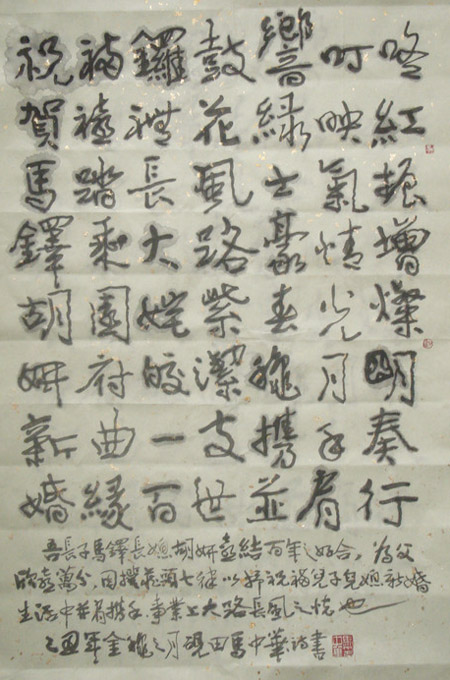 祝福鑼鼓響叮咚
賀禧禮花綠映紅
馬踏長風士氣振
鐸乘大路豪情增
胡園姹紫春光燦
妍府皎潔穐月明
新曲一支攜手奏
婚緣百世並肩行
吾長子馬鐸長媳胡妍喜結百年之好合，為父
欣喜萬分，因撰藏頭七律以祝福兒子兒媳新婚
生活中並肩攜手事業上大路長風之悅也
己丑年金穐之月硯田馬中華詩書